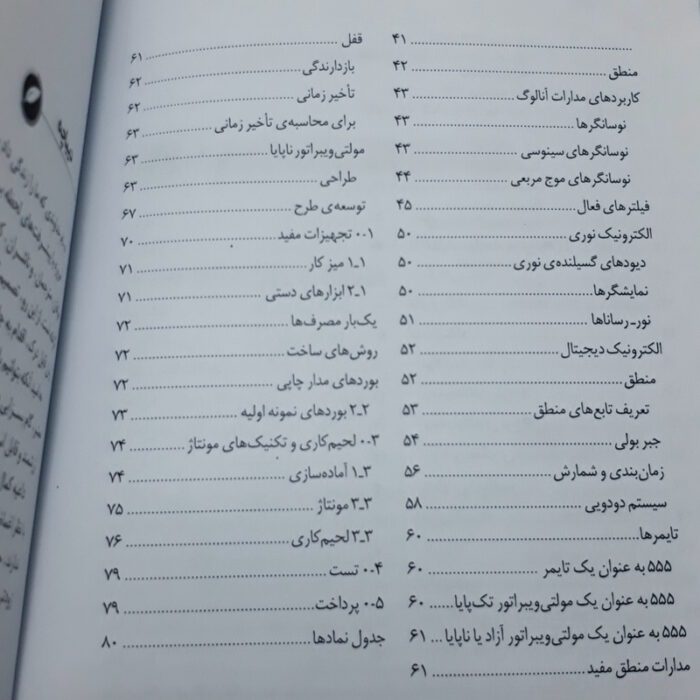 ............ ۴۱
منطق ............ ۴۲
کاربردهای مدارات آنالوگ ............ ۴۳
نوسانگرها ............ ۴۳
نوسانگرهای سینوسی ............ ۴۳
نوسانگرهای موج مربعی ............ ۴۴
فیلترهای فعال ............ ۴۵
الکترونیک نوری ............ ۵۰
دیودهای گسیلنده‌ی نوری ............ ۵۰
نمایشگرها ............ ۵۰
نور_رساناها ............ ۵۱
الکترونیک دیجیتال ............ ۵۲
منطق ............ ۵۲
تعریف تابع‌های منطق ............ ۵۳
جبر بولی ............ ۵۴
زمان‌بندی و شمارش ............ ۵۶
سیستم دودویی ............ ۵۸
تایمرها ............ ۶۰
۵۵۵ به عنوان یک تایمر ............ ۶۰
۵۵۵ به عنوان یک مولتی‌ویبراتور تک‌پایا ...... ۶۰
۵۵۵ به عنوان یک مولتی‌ویبراتور آزاد یا ناپایا ... ۶۱
مدارات منطق مفید ............ ۶۱
قفل ............ ۶۱
بازدارندگی ............ ۶۲
تأخیر زمانی ............ ۶۲
برای محاسبه‌ی تأخیر زمانی ............ ۶۳
مولتی‌ویبراتور ناپایا ............ ۶۳
طراحی ............ ۶۳
توسعه‌ی طرح ............ ۶۷
۱-۰ تجهیزات مفید ............ ۷۰
۱_۱ میز کار ............ ۷۱
۲_۱ ابزارهای دستی ............ ۷۱
یک‌بار مصرف‌ها ............ ۷۲
روش‌های ساخت ............ ۷۲
بوردهای مدار چاپی ............ ۷۲
۲_۲ بوردهای نمونه اولیه ............ ۷۳
۳-۰ لحیم‌کاری و تکنیک‌های مونتاژ ............ ۷۴
۱_۳ آماده‌سازی ............ ۷۴
۳_۳ مونتاژ ............ ۷۵
۳_۳ لحیم‌کاری ............ ۷۶
۴-۰ تست ............ ۷۹
۵-۰ پرداخت ............ ۷۹
جدول نمادها ............ ۸۰